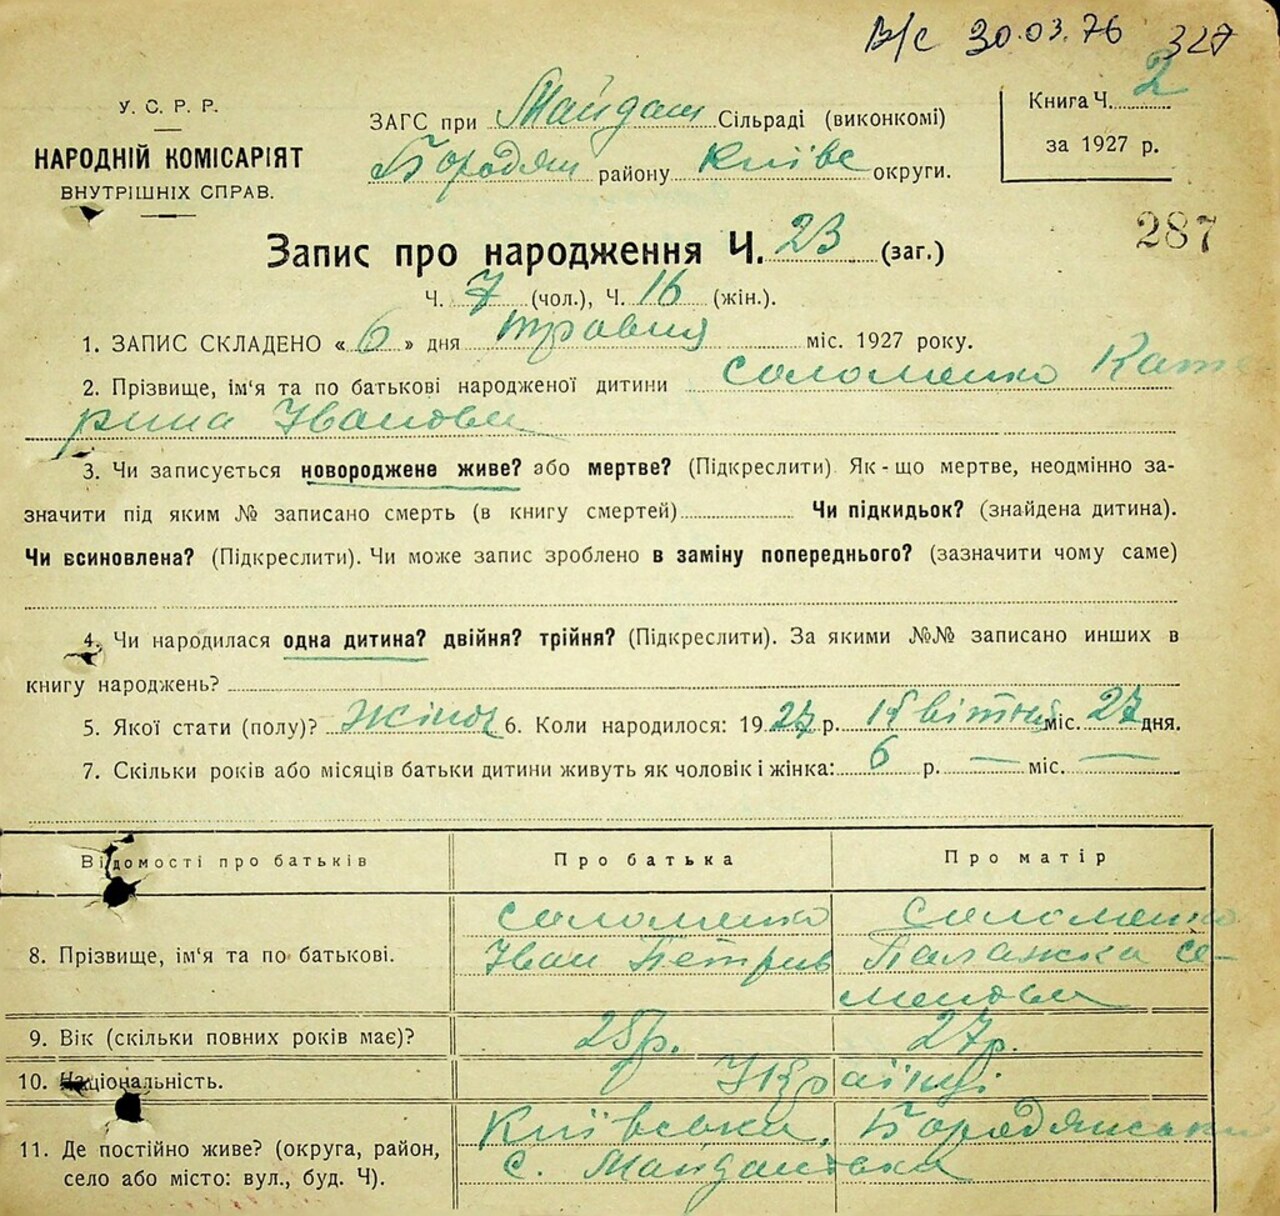 В/с 30.03.76 327
У. С. Р. Р.
НАРОДНІЙ КОМІСАРІЯТ
ВНУТРІШНІХ СПРАВ.
ЗАГС при Майдан Сільраді (виконкомі)
Бородян району Київс округи.
Книга Ч. 2
за 1927 р.
287
Запис про народження Ч. 23 (заг.)
Ч. 7 (чол.), Ч. 16 (жін.).
1. ЗАПИС СКЛАДЕНО « 6 » дня травня міс. 1927 року.
2. Прізвище, ім'я та по батькові народженої дитини Соломенко Кате
рина Іванов
3. Чи записується новороджене живе? або мертве? (Підкреслити) Як-що мертве, неодмінно за-
значити під яким № записано смерть (в книгу смертей) Чи підкидьок? (знайдена дитина).
Чи всиновлена? (Підкреслити). Чи може запис зроблено в заміну попереднього? (зазначити чому саме)
4. Чи народилася одна дитина? двійня? трійня? (Підкреслити). За якими №№ записано инших в
книгу народжень?
5. Якої стати (полу)? Жіноч 6. Коли народилося: 19 27 р. квітня міс. 27 дня.
7. Скільки років або місяців батьки дитини живуть як чоловік і жінка: 6 р. — міс. —
Відомості про батьків Про батька Про матір
8. Прізвище, ім'я та по батькові.
Соломенко
Іван Петрив
Соломенко
Палажка Се-
менов
9. Вік (скільки повних років має)? 25р. 27р.
10. Національність. Українці
11. Де постійно живе? (округа, район,
село або місто: вул., буд. Ч).
Київська, Бородянський
с. Майданівка